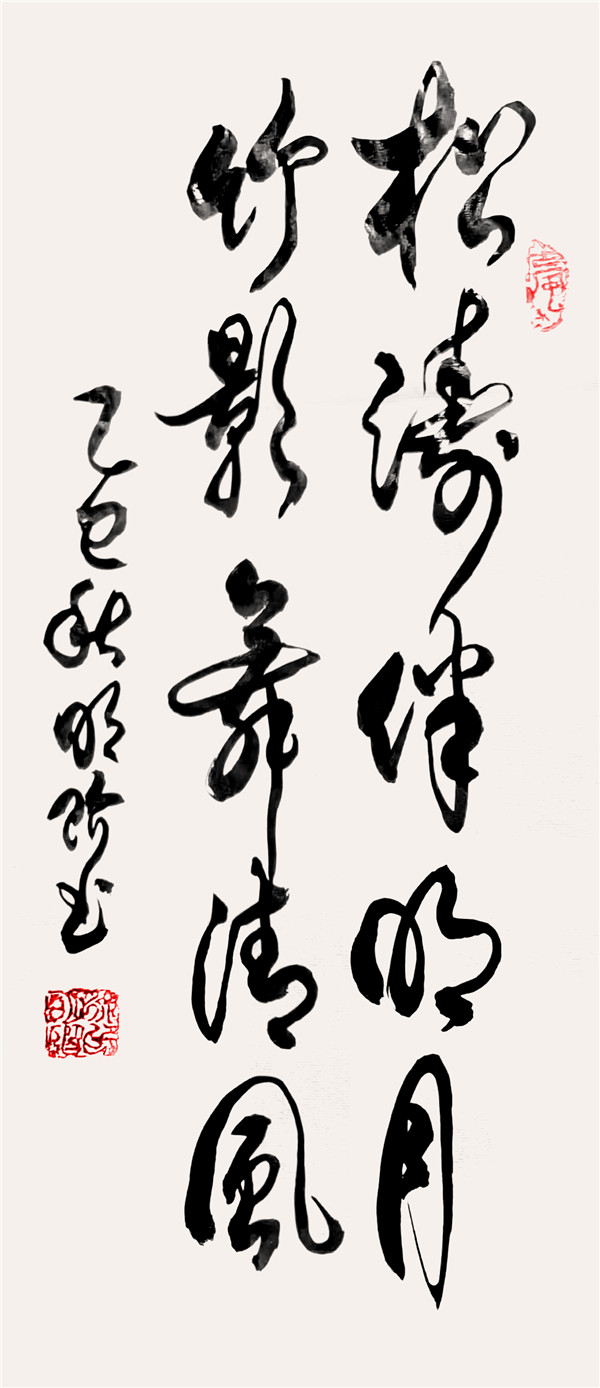 松濤伴明月
竹影舞清風
乙巳秋明阶书